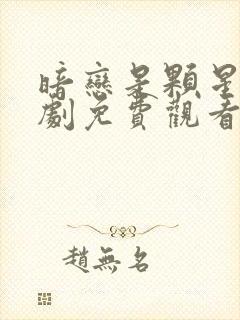 暗戀是顆星
劇免費觀看
趙無名